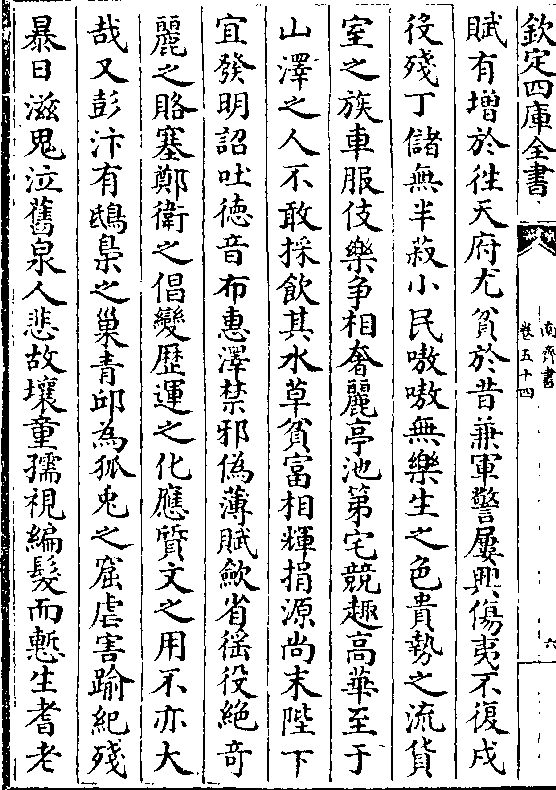 欽定四庫全書
南齊書
卷五十四
六
賦有增於徃天府尤貧於昔兼軍警屢興傷夷不復戍
役殘丁儲無半菽小民嗷嗷無樂生之色貴勢之流貨
室之族車服伎樂爭相奢麗亭池第宅競趣高華至于
山澤之人不敢採飲其水草貧富相輝捐源尚末陛下
宜發明詔吐徳音布惠澤禁邪偽薄賦斂省徭役絶奇
麗之賂塞鄭衛之倡變歴運之化應質文之用不亦大
哉又彭汴有鴟梟之巢青邱為狐兎之窟虐害踰紀殘
暴日滋鬼泣舊泉人悲故壤童孺視編髮而慙生耆老